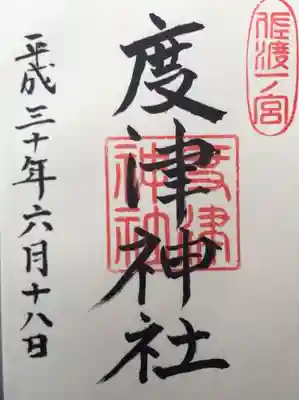 佐渡一ノ宮
度津神社
度津
神社
平成三十年六月十八日